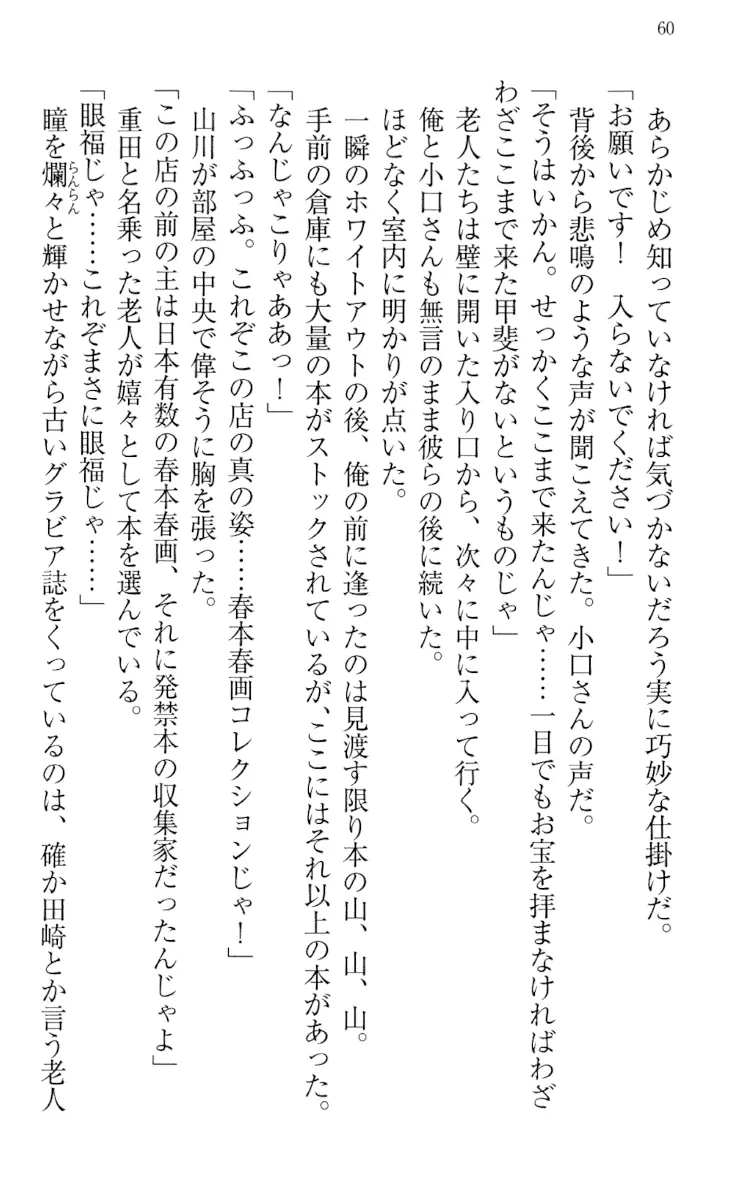 60
あらかじめ知っていなければ気づかないだろう実に巧妙な仕掛けだ。
「お願いです！　入らないでください！」
背後から悲鳴のような声が聞こえてきた。小口さんの声だ。
「そうはいかん。せっかくここまで来たんじゃ……一目でもお宝を拝まなければわざ
わざここまで来た甲斐がないというものじゃ」
老人たちは壁に開いた入り口から、次々に中に入って行く。
俺と小口さんも無言のまま彼らの後に続いた。
ほどなく室内に明かりが点いた。
一瞬のホワイトアウトの後、俺の前に逢ったのは見渡す限り本の山、山、山。
手前の倉庫にも大量の本がストックされているが、ここにはそれ以上の本があった。
「なんじゃこりゃああっ！」
「ふっふっふ。これぞこの店の真の姿……春本春画コレクションじゃ！」
山川が部屋の中央で偉そうに胸を張った。
「この店の前の主は日本有数の春本春画、それに発禁本の収集家だったんじゃよ」
重田と名乗った老人が嬉々として本を選んでいる。
「眼福じゃ……これぞまさに眼福じゃ……」
瞳を爛々らんらんと輝かせながら古いグラビア誌をくっているのは、確か田崎とか言う老人